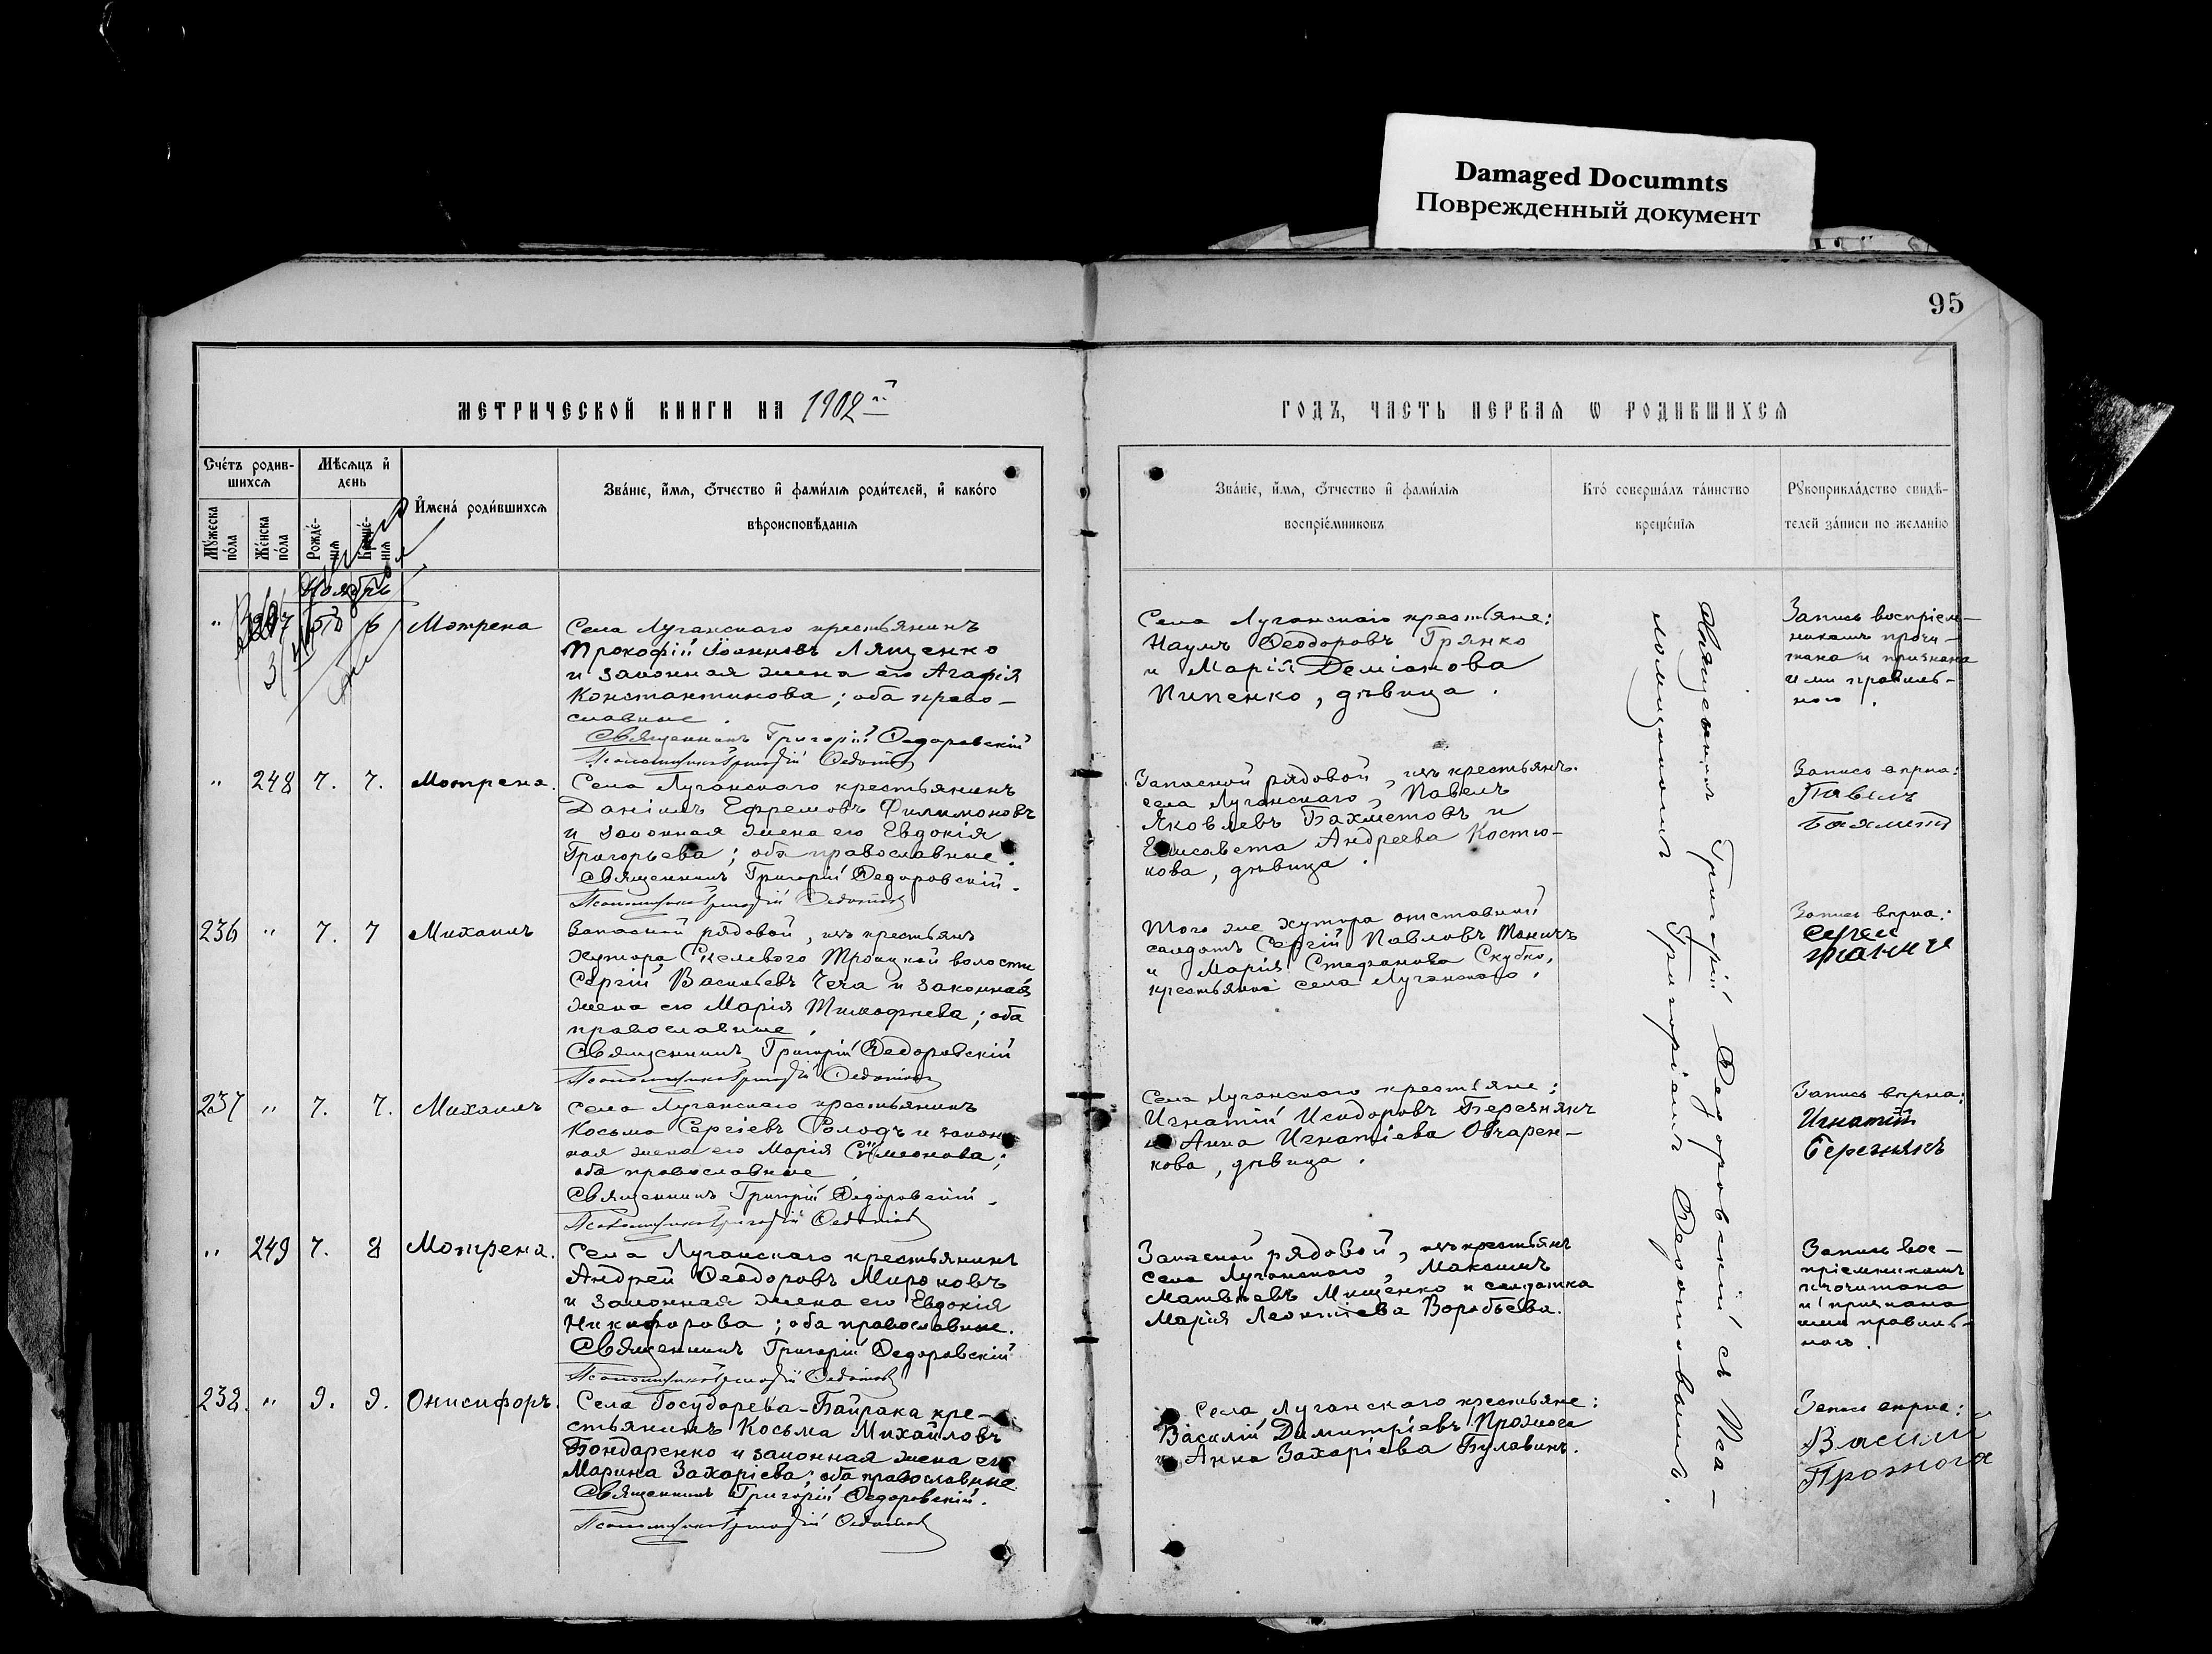 Damaged Documnts
Поврежденный документ
95
МЕТРИЧЕСКОЙ КНИГИ НА 1902 й
ГОДЪ, ЧАСТЬ ПЕРВАЯ Ѡ РОДИВШИХСѦ
Сче́тъ родив-
шихсѧ
Мѣ́сѧцъ и҆
день
Мꙋ́жеска по́ла
Же́нска по́ла
Рожде́-
нїѧ
Креще́-
нїѧ
И҆мена́ роди́вшихсѧ
Зва́нїе, и҆́мѧ, ѻ҆́тчество и҆ фами́лїѧ роди́телей, и҆ како́го
вѣроисповѣ́данїѧ
Зва́нїе, и҆́мѧ, ѻ҆́тчество и҆ фами́лїѧ
воспрїе́мниковъ
Кто́ соверша́лъ та́инство
креще́нїѧ
Рꙋкоприкла́дство свидѣ́-
телей за́писи по жела́нїю
Ноябрь
" 247 6 Мотрена
Села Луганскаго крестьянинъ
Прокофій Іоанновъ Лященко
и законная жена его Агафія
Константинова; оба право-
славные.
Священникъ Григорій Федоровскій
Псаломщикъ Григорій Федотовъ
Села Луганскаго крестьяне:
Наумъ Ѳеодоровъ Грянко
и Марія Деміанова
Пипенко, дѣвица.
Запись воспріем-
никамъ прочи-
тана и признана
ими правиль-
ною.
" 248 7. 7. Мотрена.
Села Луганскаго крестьянинъ
Даніилъ Ефремовъ Филимоновъ
и законная жена его Евдокія
Григорьева; оба православные.
Священникъ Григорій Федоровскій.
Псаломщикъ Григорій Федотовъ
Запасной рядовой, изъ крестьянъ
села Луганскаго, Павелъ
Яковлевъ Бахметовъ и
Елисавета Андреева Костю-
кова, дѣвица.
Запись вѣрна:
Павелъ
236 " 7. 7 Михаилъ
Запасной рядовой, изъ крестьянъ
хутора Скелевого Троицкой волости
Сергій Васильевъ Чеча и законная
жена его Марія Тимофѣева; оба
православные.
Священникъ Григорій Федоровскій
Псаломщикъ Григорій Федотовъ
Того же хутора отставной
солдатъ Сергій Павловъ Ткничъ
и Марія Стефанова Скубко,
крестьянка села Луганскаго.
Запись вѣрна:
Сергей
237 " 7. 7. Михаилъ
Села Луганскаго крестьянинъ
Косьма Сергіевъ Солодъ и закон-
ная жена его Марія Симеонова;
оба православные
Священникъ Григорій Федоровскій.
Псаломщикъ Григорій Федотовъ
Села Луганскаго крестьяне:
Игнатій Исидоровъ Березнякъ
и Анна Игнатіева Овчарен-
кова, дѣвица.
Запись вѣрна:
Игнатій
Березнякъ
" 249 7. 8 Мотрена.
Села Луганскаго крестьянинъ
Андрей Ѳеодоровъ Мироновъ
и законная жена его Евдокія
Никифорова; оба православные.
Священникъ Григорій Федоровскій
Псаломщикъ Григорій Федотовъ
Запасной рядовой, изъ крестьянъ
села Луганскаго, Максимъ
Матвѣевъ Мищенко и солдатка
Марія Леонтіева Воробьева.
Запись вос-
пріемникамъ
прочитана
и признана
ими правиль-
ною.
238. " 9. 9. Онисифоръ.
Села Государева-Байрака кре-
стьянинъ Косьма Михайловъ
Бондаренко и законная жена его
Марина Захаріева; оба православные.
Священникъ Григорій Федоровскій.
Псаломщикъ Григорій Федотовъ
Села Луганскаго крестьяне:
Василій Димитріевъ Прожога
и Анна Захаріева Булавинъ.
Запись вѣрна:
Василий
Прожога
Священникъ Григорій Федоровскій съ Пса-
ломщикомъ Григоріемъ Федотовымъ.